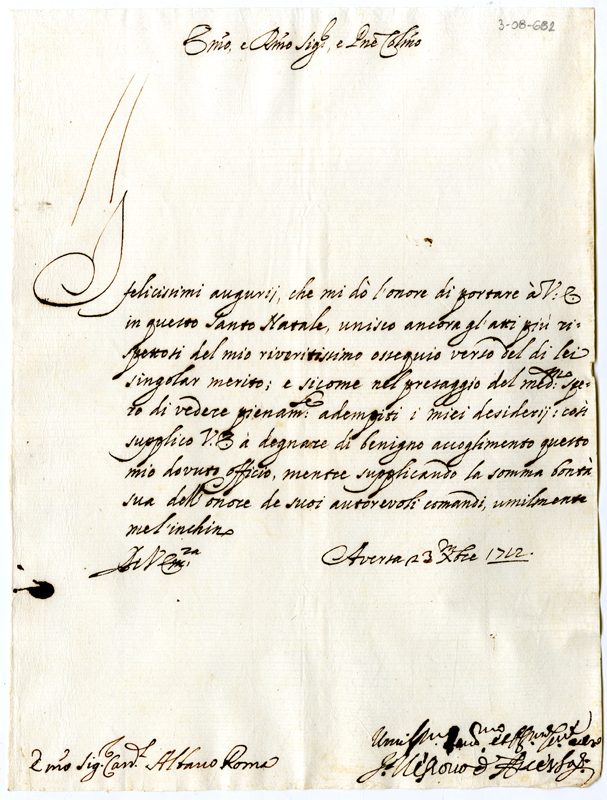 3-08-682
Emo, e Rmo Sigr, e Pne Colmo
J felicissimi augurij, che mi dò l'onore di portare à V: E
in questo Santo Natale, unisco ancora gl'atti più ri-
spettosi del mio riveritissimo ossequio verso del di lei
singolar merito; e sicome nel presaggio del medmo spe-
ro di vedere pienamte adempiti i miei desiderij: così
supplico V: E à degnare di benigno accoglimento questo
mio dovuto officio, mentre supplicando la somma bontà
sua dell'onore de suoi autorevoli comandi, umilmente
me l'inchino
Di V. Emza Aversa 23 Xbre 1712.
Emo Sigr Cardl Albano Roma
Il Vescovo d'Aversa